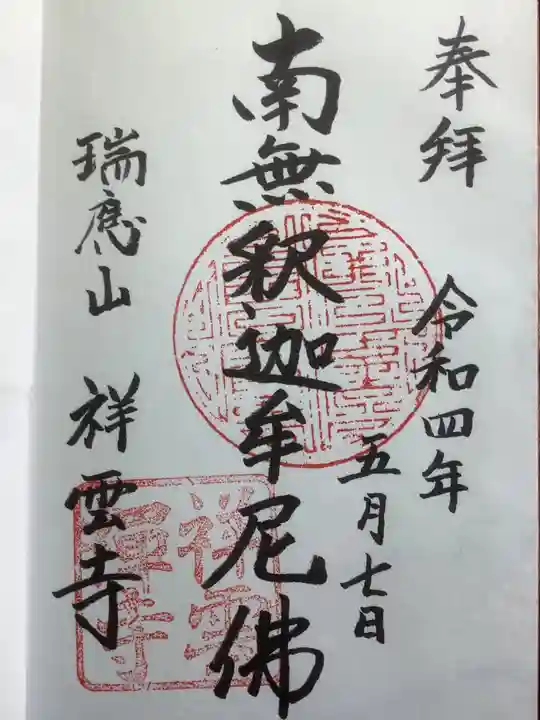 奉拜
令和四年
五月七日
南無釈迦牟尼佛
瑞應山
祥雲寺
祥雲
禅寺